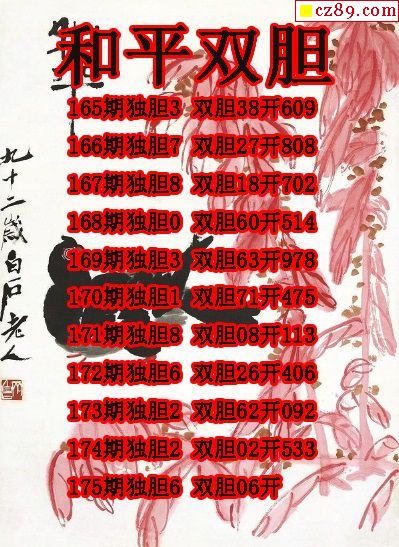 cz89.com
和平双胆
165期独胆3 双胆38开609
166期独胆7 双胆27开808
167期独胆8 双胆18开702
168期独胆0 双胆60开514
169期独胆3 双胆63开978
170期独胆1 双胆71开475
171期独胆8 双胆08开113
172期独胆6 双胆26开406
173期独胆2 双胆62开092
174期独胆2 双胆02开533
175期独胆6 双胆06开
九十二岁白石老人